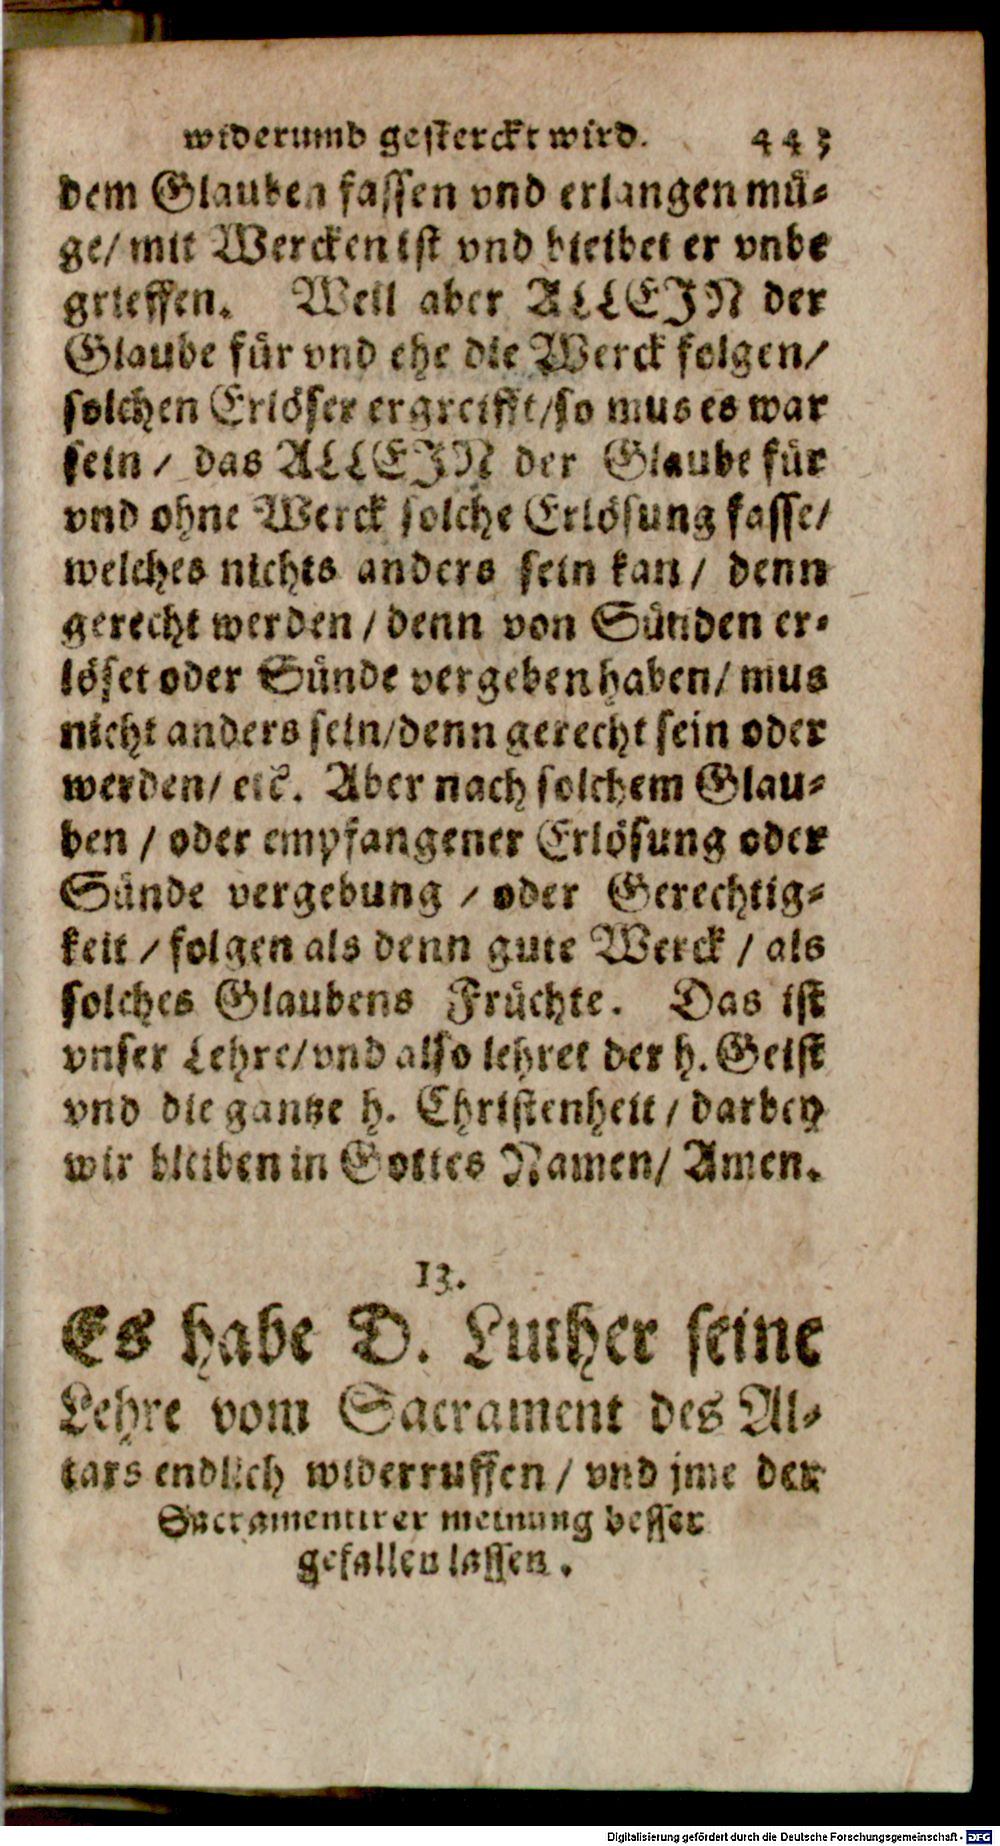 widerumb gesterckt wird. 443
dem Glauben fassen vnd erlangen mü-
ge/ mit Wercken ist vnd bleibet er vnbe
grieffen. Weil aber ALLEIN der
Glaube für vnd ehe die Werck folgen/
solchen Erlöser ergreifft/so mus es war
sein / das ALLEIN der Glaube für
vnd ohne Werck solche Erlösung fasse/
welches nichts anders sein kan / denn
gerecht werden / denn von Sünden er-
löset oder Sünde vergeben haben/ mus
nicht anders sein/denn gerecht sein oder
werden/ etc. Aber nach solchem Glau-
ben / oder empfangener Erlösung oder
Sünde vergebung / oder Gerechtig-
keit / folgen als denn gute Werck / als
solches Glaubens Früchte. Das ist
vnser Lehre/vnd also lehret der h. Geist
vnd die gantze h. Christenheit / darbey
wir bleiben in Gottes Namen/ Amen.
13.
Es habe D. Luther seine
Lehre vom Sacrament des Al-
tars endlich widerruffen / vnd jme der
Sacramentirer meinung besser
gefallen lassen.
Digitalisierung gefördert durch die Deutsche Forschungsgemeinschaft - DFG